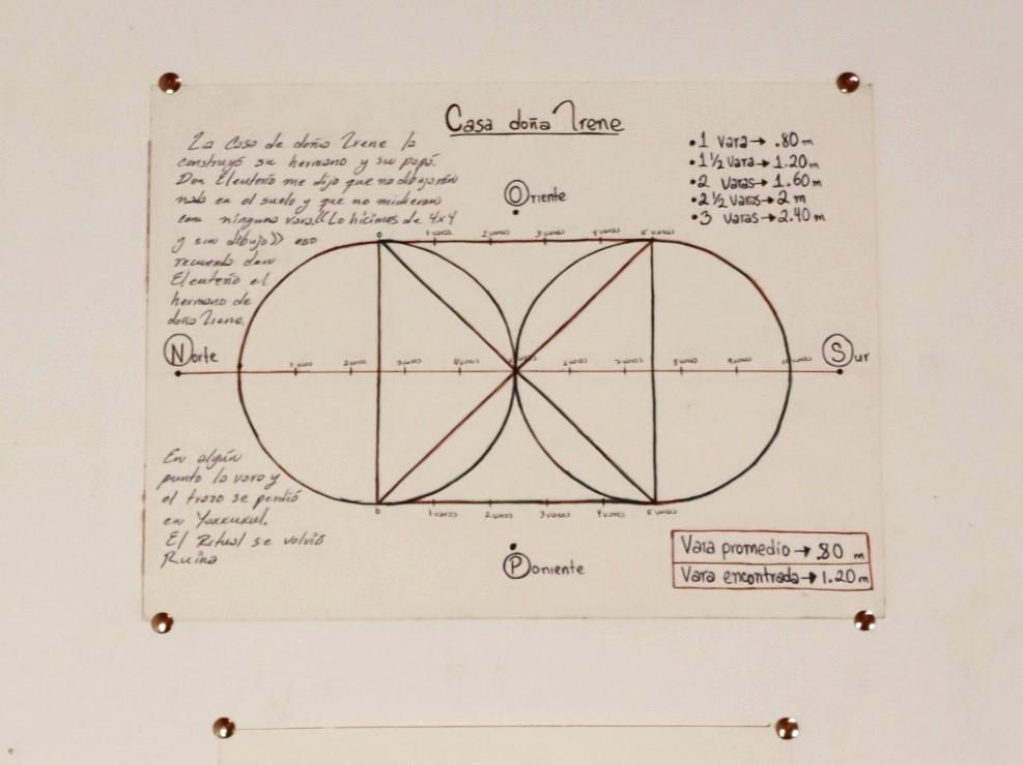 Casa doña Irene
La Casa de doña Irene la
construyó su hermano y su papá.
Don Eleuterio me dijo que no dibujaron
nada en el suelo y que no midieron
con ninguna vara. «Lo hicimos de 4x4
y sin dibujo» eso
recuerda don
Eleuterio el
hermano de
doña Irene.
•1 Vara→ .80 m
•1 ½ Vara→1.20m
•2 Varas→1.60m
•2 ½ Varas→2 m
•3 Varas→2.40 m
Oriente
0 1 varas 2 varas 3 varas 4 varas 5 varas
Norte
1 varas 2 varas 3 varas 4 varas 6 varas 7 varas 8 varas 9 varas
Sur
0 1 varas 2 varas 3 varas 4 varas 5 varas
Poniente
En algún
punto la vara y
el trazo se perdió
en Yaxkukul.
El Ritual se volvió
Ruina
Vara promedio→.80 m
Vara encontrada→1.20m